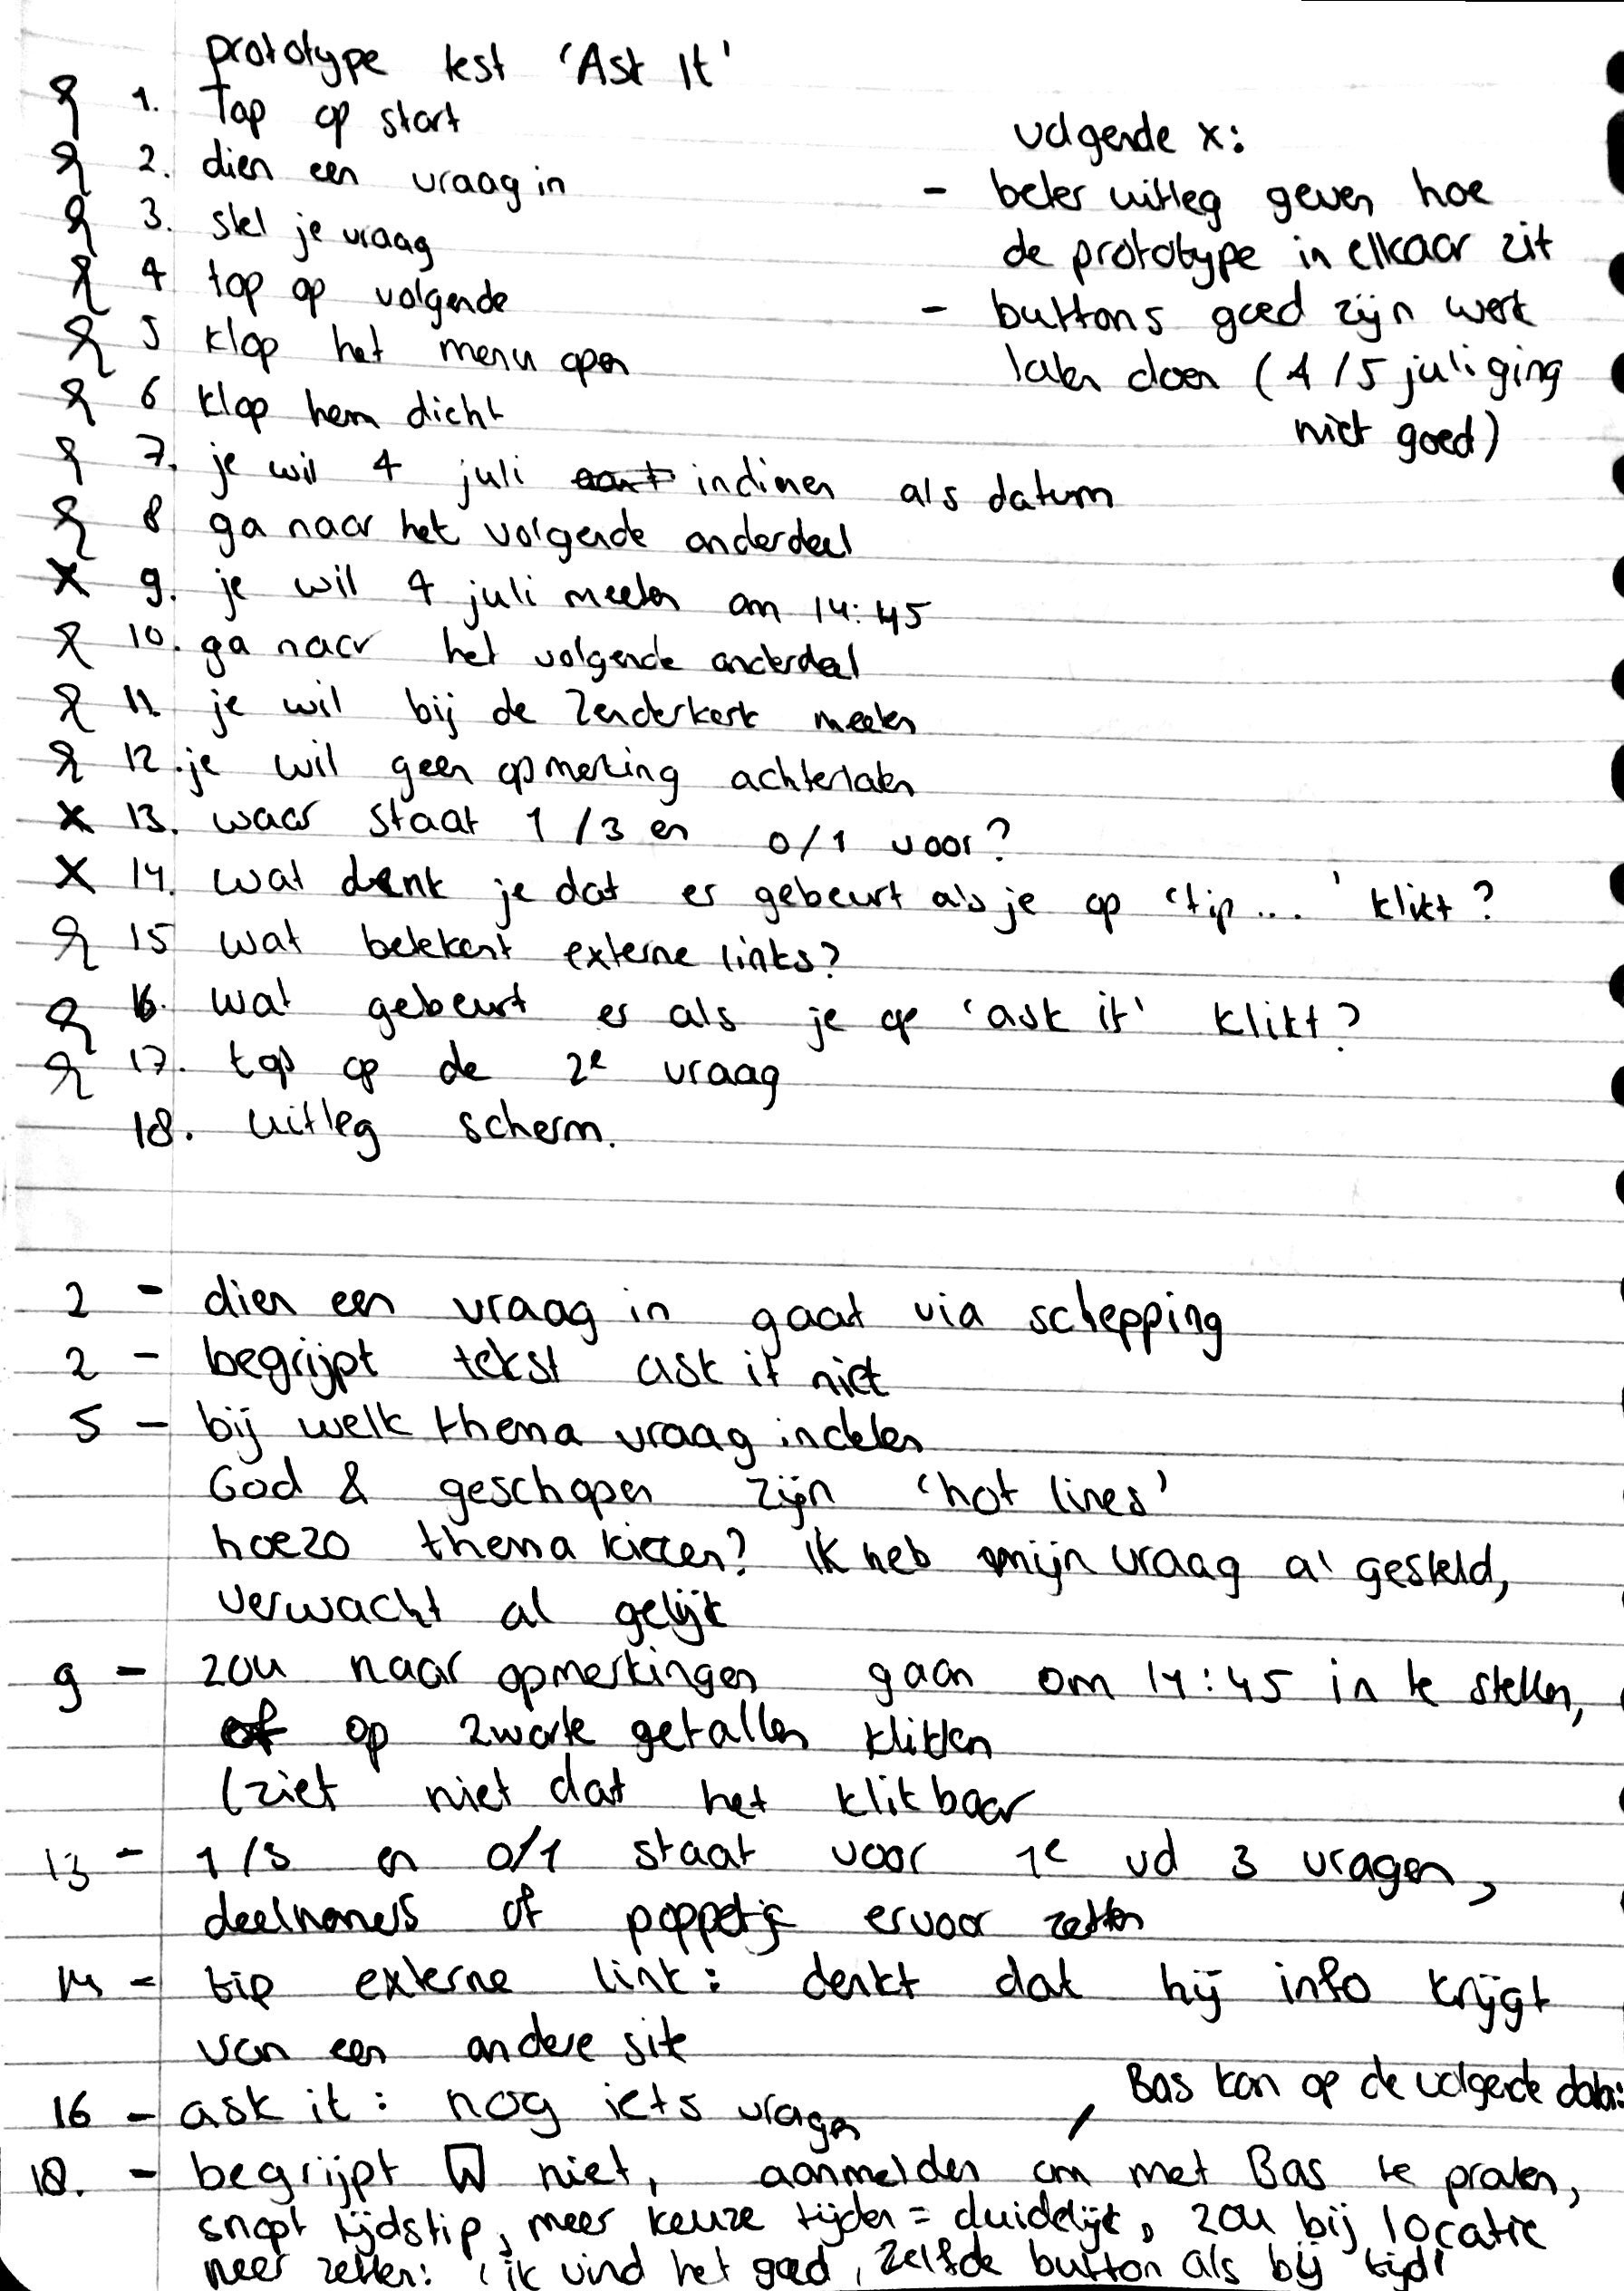 prototype test 'Ask It'
1. Tap op start
2. dien een vraag in
3. stel je vraag
4 tap op volgende
5 klap het menu open
6 klap hem dicht
7. je wil 4 juli indienen als datum
8 ga naar het volgende onderdeel
X 9. je wil 4 juli meeten om 14:45
10. ga naar het volgende onderdeel
11. je wil bij de Zenderkerk meeten
12. je wil geen opmerking achterlaten
X 13. waar staat 1/3 en 0/1 voor?
X 14. wat denk je dat er gebeurt als je op 'tip...' klikt?
15 wat betekent externe links?
16. wat gebeurt er als je op 'ask it' klikt?
17. tap op de 2e vraag
18. uitleg scherm.
volgende x:
- beter uitleg geven hoe
de prototype in elkaar zit
- buttons goed zijn werk
laten doen (4/5 juli ging
niet goed)
2 - dien een vraag in gaat via schepping
2 - begrijpt tekst ask it niet
5 - bij welk thema vraag indelen
God & geschapen zijn 'hot lines'
hoezo thema kiezen? ik heb mijn vraag al gesteld,
verwacht al gelijk
9 - zou naar opmerkingen gaan om 14:45 in te stellen,
of op zwarte getallen klikken
(ziet niet dat het klikbaar
13 - 1/3 en 0/1 staat voor 1e vd 3 vragen,
deelnemers of poppetje ervoor zetten
14 - tip externe link: denkt dat hij info krijgt
van een andere site
16 - ask it: nog iets vragen
Bas kan op de volgende data:
18. - begrijpt niet, aanmelden om met Bas te praten,
snapt tijdstip, meer keuze tijden = duidelijk, zou bij locatie
neer zetten: 'ik vind het goed, zelfde button als bij tijd'